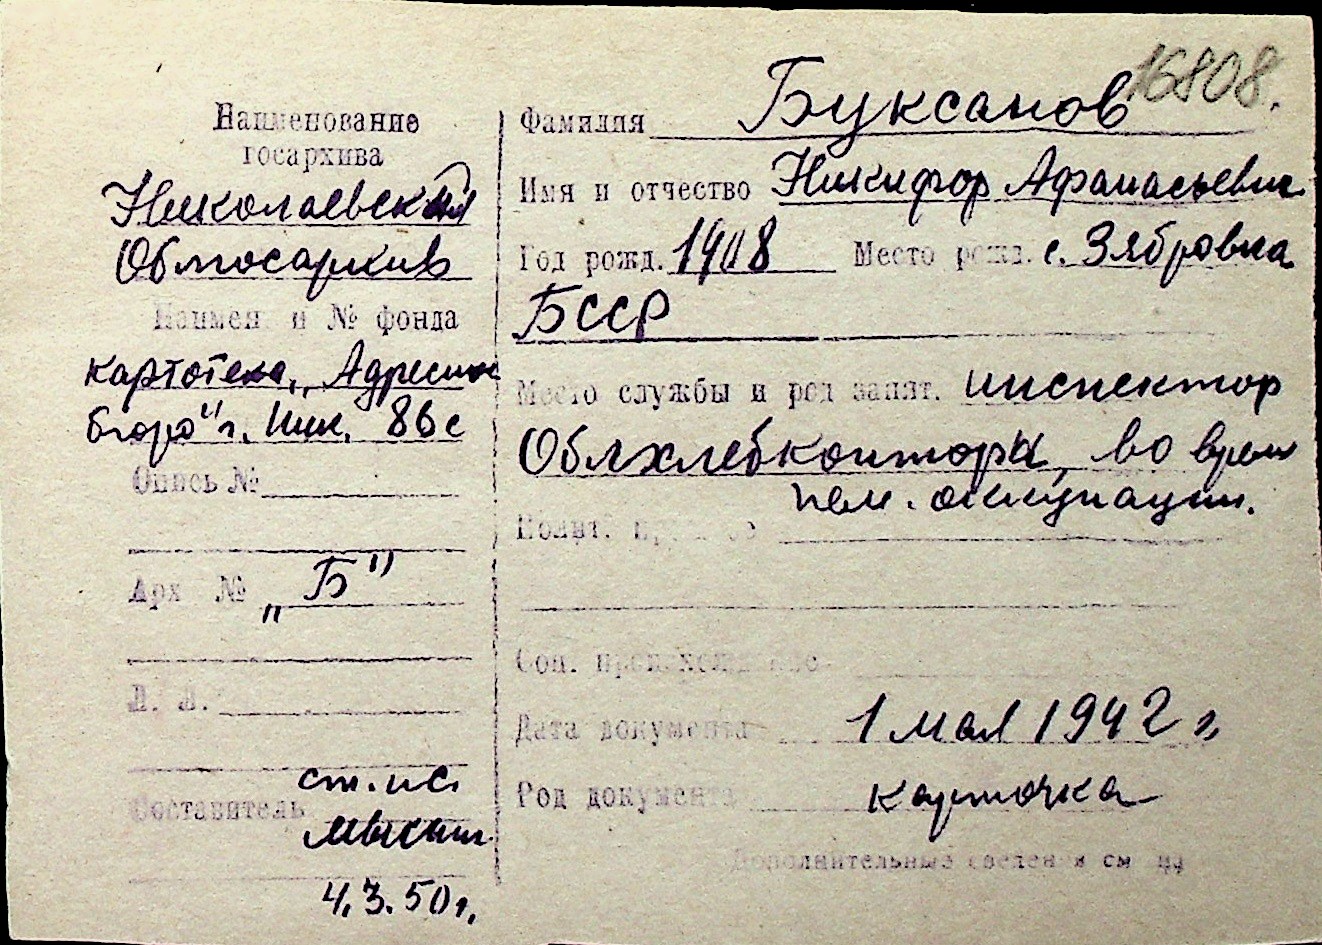 16808.
Наименование
госархива
Николаевский
Облгосархив
Наимен. и № фонда
картотека „Адресное
бюро" г. Ник. 86 с
Опись №
Арх №  „Б"
Л. Л.
Составитель ст. ис.
4.3.50 г.
Фамилия Буксанов
Имя и отчество Никифор Афанасьевич
Год рожд. 1908 Место рожд. с. Зябровка
БССР
Место службы и род занят. инспектор
Облхлебконтора, во время
нем. оккупации.
Полит. прошлое
Соц. происхождение
Дата документа 1 мая 1942 г.
Род документа карточка
Дополнительные сведения см